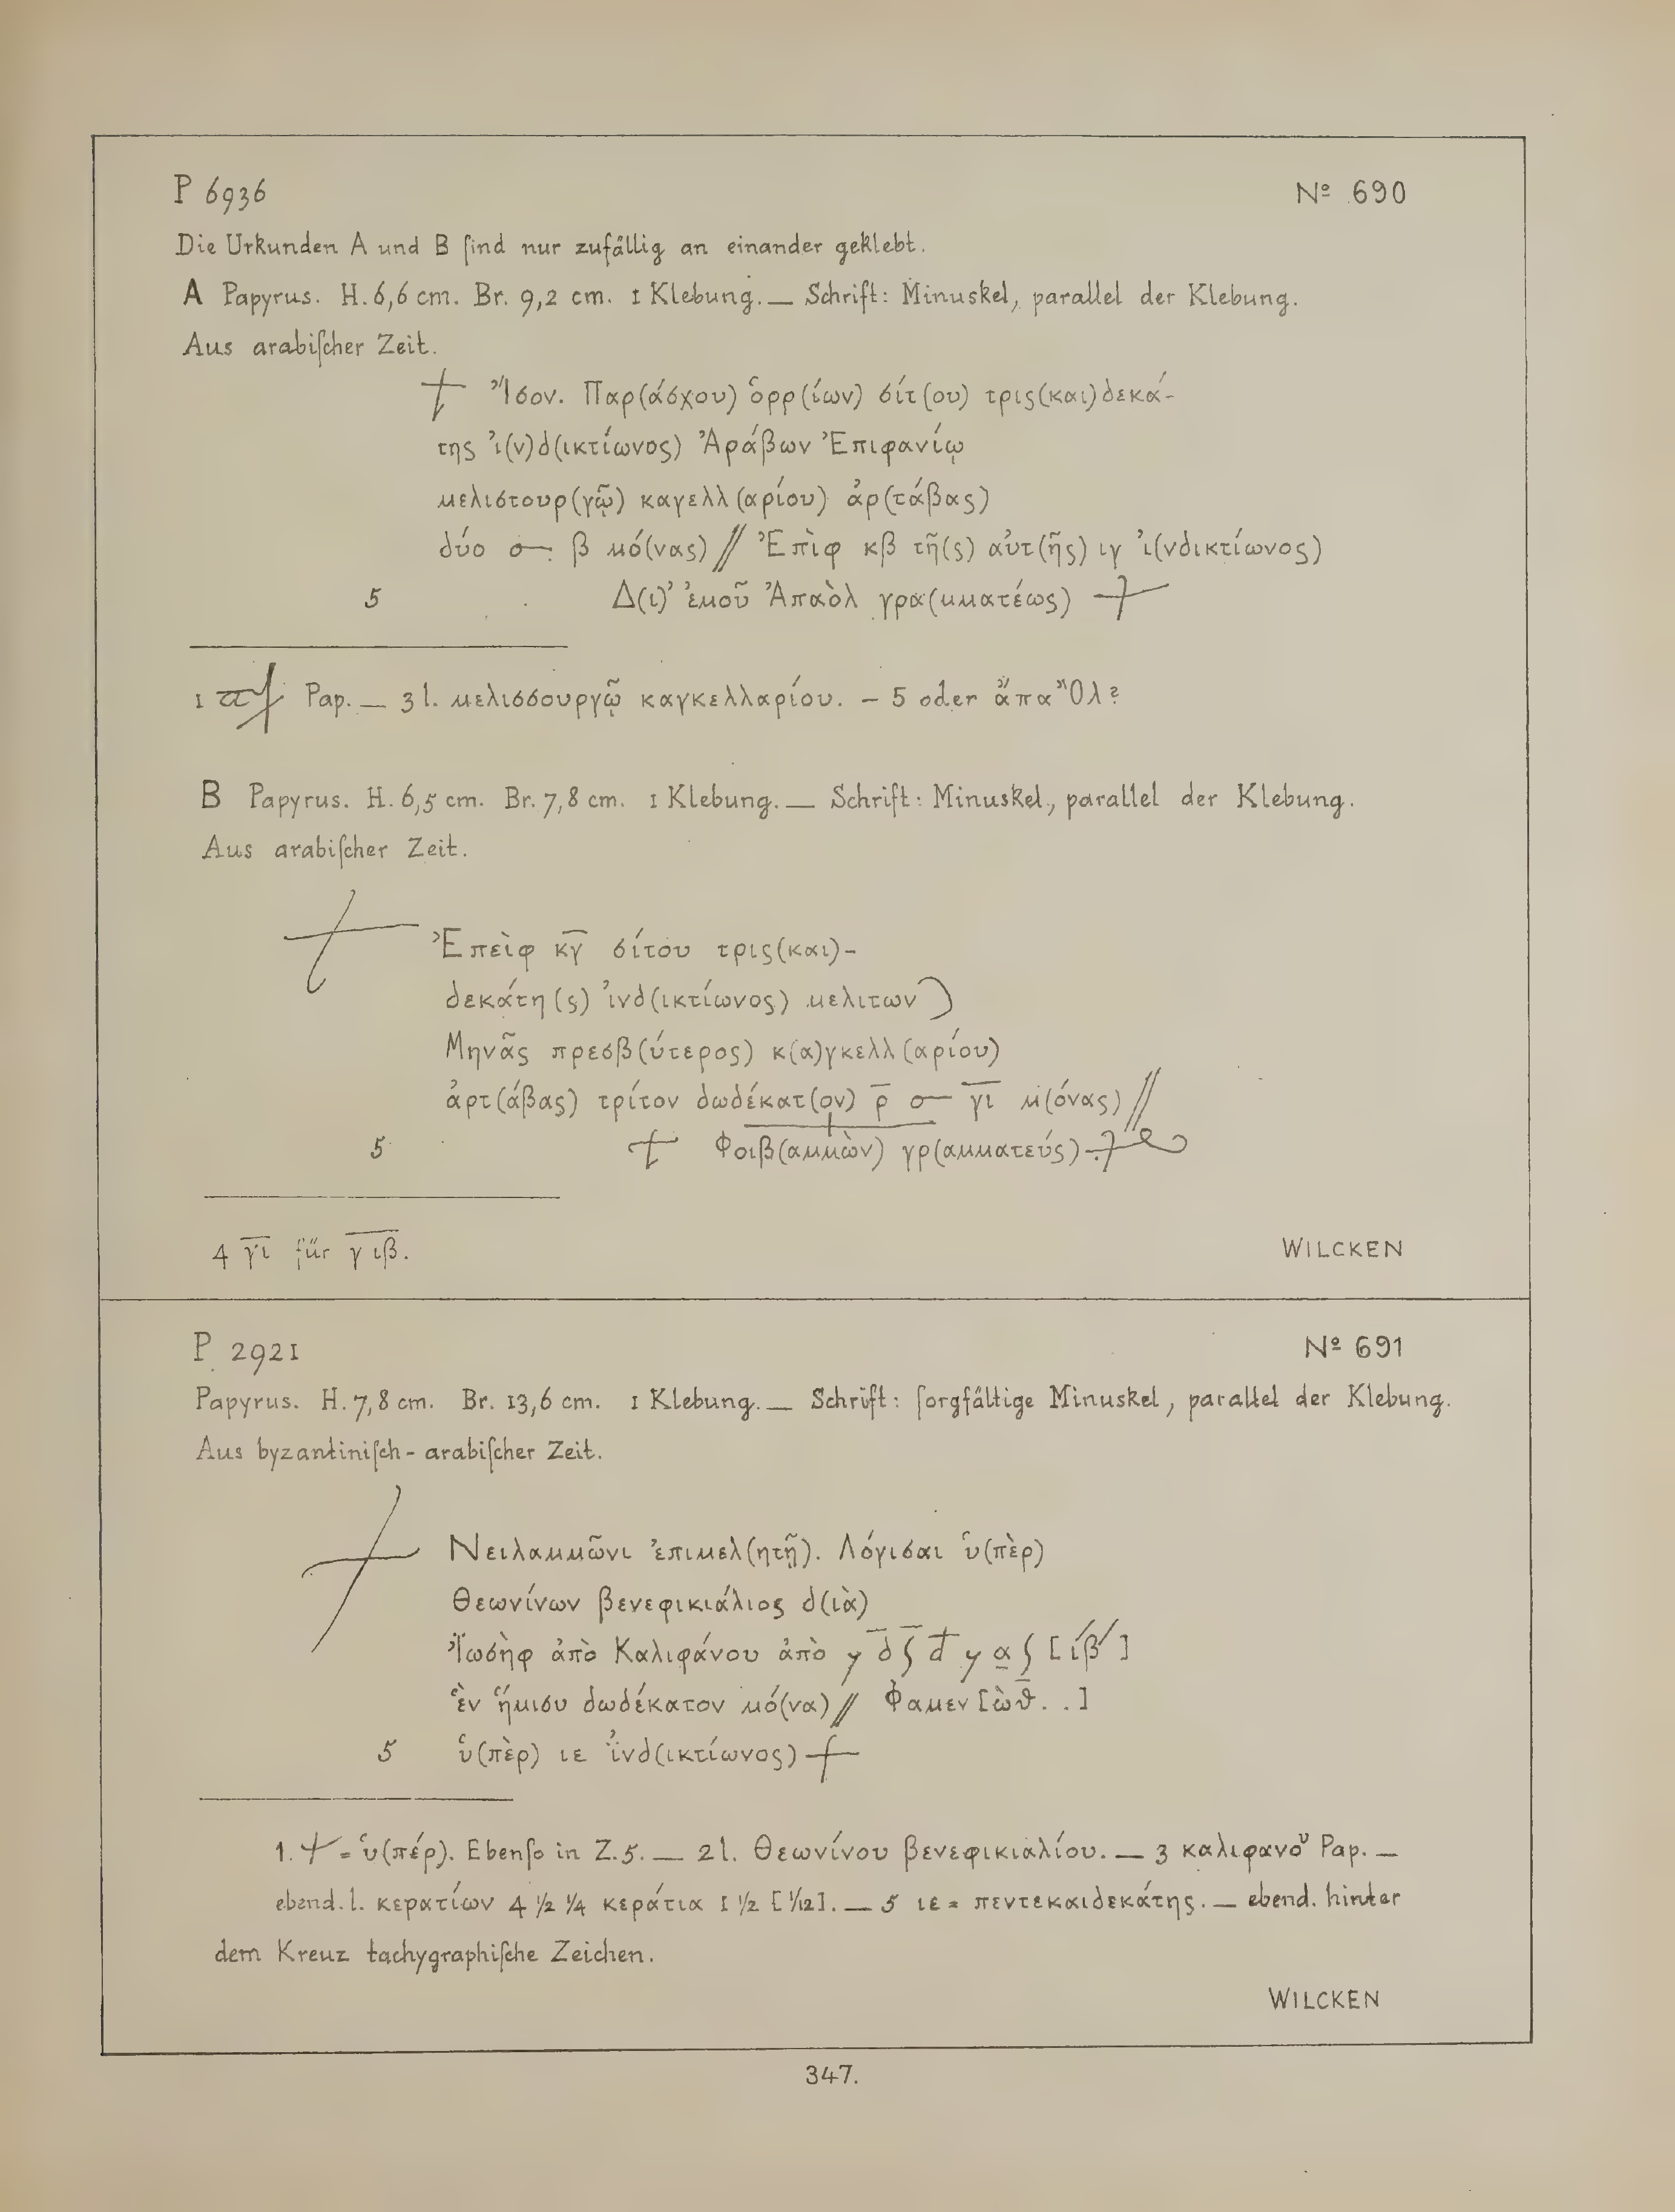 P 6936
Nº 690
Die Urkunden A und B ſind nur zufällig an einander geklebt.
A Papyrus. H. 6,6 cm. Br. 9,2 cm. 1 Klebung. — Schrift: Minuskel, parallel der Klebung.
Aus arabiſcher Zeit.
Ἴσον. Παρ(άσχου) ὁρρ(ίων) σίτ(ου) τρις(και)δεκά-
της ἰ(ν)δ(ικτίωνος) Ἀράβων Ἐπιφανίῳ
μελιστουρ(γῷ) καγελλ(αρίου) ἀρ(τάβας)
δύο β μό(νας) // Ἐπὶφ κβ τῆ(ς) αὐτ(ῆς) ιγ ἰ(νδικτίωνος)
5 Δ(ι)’ ἐμοῦ Ἀπαὸλ γρα(μματέως)
1 Pap. — 3 l. μελισσουργῷ καγκελλαρίου. – 5 oder ἄπα Ὂλ?
B Papyrus. H. 6,5 cm. Br. 7,8 cm. 1 Klebung. — Schrift: Minuskel, parallel der Klebung.
Aus arabiſcher Zeit.
Ἐπεὶφ κ̅γ̅ σίτου τρις(και)-
δεκάτη(ς) ἰνδ(ικτίωνος) μελιτων)
Μηνᾶς πρεσβ(ύτερος) κ(α)γκελλ(αρίου)
ἀρτ(άβας) τρίτον δωδέκατ(ον) ρ̅ γ̅ι̅ μ(όνας) //
5 Φοιβ(αμμὼν) γρ(αμματεύς)
4 γ̅ι̅ für γ̅ ι̅β̅.
WILCKEN
P. 2921
Nº 691
Papyrus. H. 7,8 cm. Br. 13,6 cm. 1 Klebung. — Schrift: ſorgfältige Minuskel, parallel der Klebung.
Aus byzantiniſch-arabiſcher Zeit.
Νειλαμμῶνι ἐπιμελ(ητῇ). Λόγισαι ὑ(πὲρ)
Θεωνίνων βενεφικιάλιος δ(ιὰ)
Ἰωσὴφ ἀπὸ Καλιφάνου ἀπὸ [ιβʹ]
ἓν ἥμισυ δωδέκατον μό(να) // Φαμεν[ὼθ . .]
5 ὑ(πὲρ) ιε ἰνδ(ικτίωνος)
1. = ὑ(πέρ). Ebenſo in Z. 5. — 2 l. Θεωνίνου βενεφικιαλίου. — 3 καλιφανοͧ Pap. —
ebend. l. κερατίων 4 ½ ¼ κεράτια 1 ½ [1/12]. — 5 ιε = πεντεκαιδεκάτης. — ebend. hinter
dem Kreuz tachygraphiſche Zeichen.
WILCKEN
347.